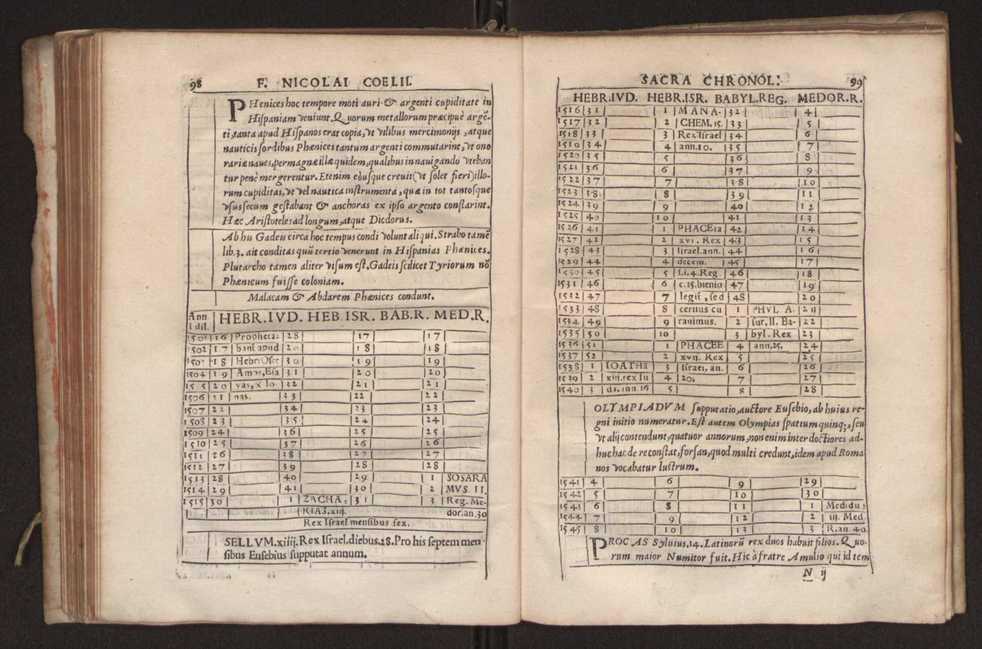 98 F. NICOLAI COELII.
PHenices hoc tempore moti auri & argenti cupiditate in
Hispaniam veniunt. Quorum metallorum præcipuè argē-
ti, tanta apud Hispanos erat copia, vt vilibus mercimonijs, atque
nauticis sordibus Phœnices tantum argenti commutarint, vt ono
rariæ naues, permagnæ illæ quidem, qualibus in nauigando vteban
tur penè mergerentur. Etenim eousque creuit (vt solet fieri) illo-
rum cupiditas, vt vel nautica instrumenta, quæ in tot tantosque
vsus secum gestabant & anchoras ex ipso argento constarint.
Hæc Aristoteles ad longum, atque Diodorus.
Ab hu Gadeis circa hoc tempus condi volunt aliqui. Strabo tamē
lib. 3. ait conditas quū tertio venerunt in Hispanias Phœnices.
Plutarcho tamen aliter visum est, Gadeis scilicet Tyriorum nō
Phœnicum fuisse coloniam.
Malacam & Abdaram Phœnices condunt.
Ann
i dil. HEBR. IVD. HEB. ISR. BAB. R. MED. R.
1501 16 Propheta: 28 17 17
1502 17 bant apud 20 18 18
1503 18 Hebr. Osee 30 19 19
1504 19 Amos, Esa 31 20 20
1505 20 yas, & Io 32 21 21
1506 21 nas. 33 22 22
1507 22 34 23 23
1508 23 35 24 24
1509 24 36 25 25
1510 25 37 26 26
1511 26 38 27 27
1512 27 39 28 28
1513 28 40 29 1 SOSARA
1514 29 41 30 2 MVS. II.
1515 30 1 ZACHA. 31 3 Reg. Me-
RIAS. xiij. dor. an. 30
Rex Israel mensibus sex.
SELLVM. xiiij. Rex Israel. diebus. 28. Pro his septem men
sibus Eusebius supputat annum.
SACRA CHRONOL. 99
HEBR. IVD. HEBR. ISR. BABYL. REG. MEDOR. R.
1516 31 1 MANA- 32 4
1517 32 2 CHEM. 15. 33 5
1518 33 3 Rex Israel 34 6
1519 34 4 ann. 10. 35 7
1520 35 5 36 8
1521 36 6 37 9
1522 37 7 38 10
1523 38 8 39 11
1524 39 9 40 12
1525 40 10 41 13
1526 41 1 PHACEia 42 14
1527 42 2 xvi. Rex 43 15
1528 43 3 Israel. ann. 44 16
1529 44 4 decem. 45 17
1530 45 5 Li. 4. Reg. 46 18
1531 46 6 c. 15. bienio 47 19
1532 47 7 legis, sed 48 20
1533 48 8 certius cu 1 PHVL A- 21
1534 49 9 rauimus. 2 sur, ll. Ba- 22
1535 50 10 3 byl. Rex 23
1536 51 1 PHACEE 4 ann. 25. 24
1537 52 2 xvii. Rex 5 25
1538 1 IOATHA 3 Israel, an. 6 26
1539 2 xiii. rex Iu 4 20. 7 27
1540 3 da. ann. 16 5 8 28
OLYMPIADVM supputatio, auctore Eusebio, ab huius re-
gni initio numeratur. Est autem Olympias spatium quinq;, seu
vt alij contendunt, quatuor annorum, non enim inter doctiores ad-
huc hac de re constat, forsan, quod multi credunt, idem apud Roma
nos vocabatur lustrum.
1541 4 6 9 29
1542 5 7 10 30
1543 6 8 11 1 Medidu:
1544 7 9 12 2 iii. Med.
1545 8 10 13 3 R. an. 40.
PROCAS Syluius, 14. Latinorū rex duos habuit filios. Quo-
rum maior Numitor fuit. Hic à fratre Amulio qui idem
N ij